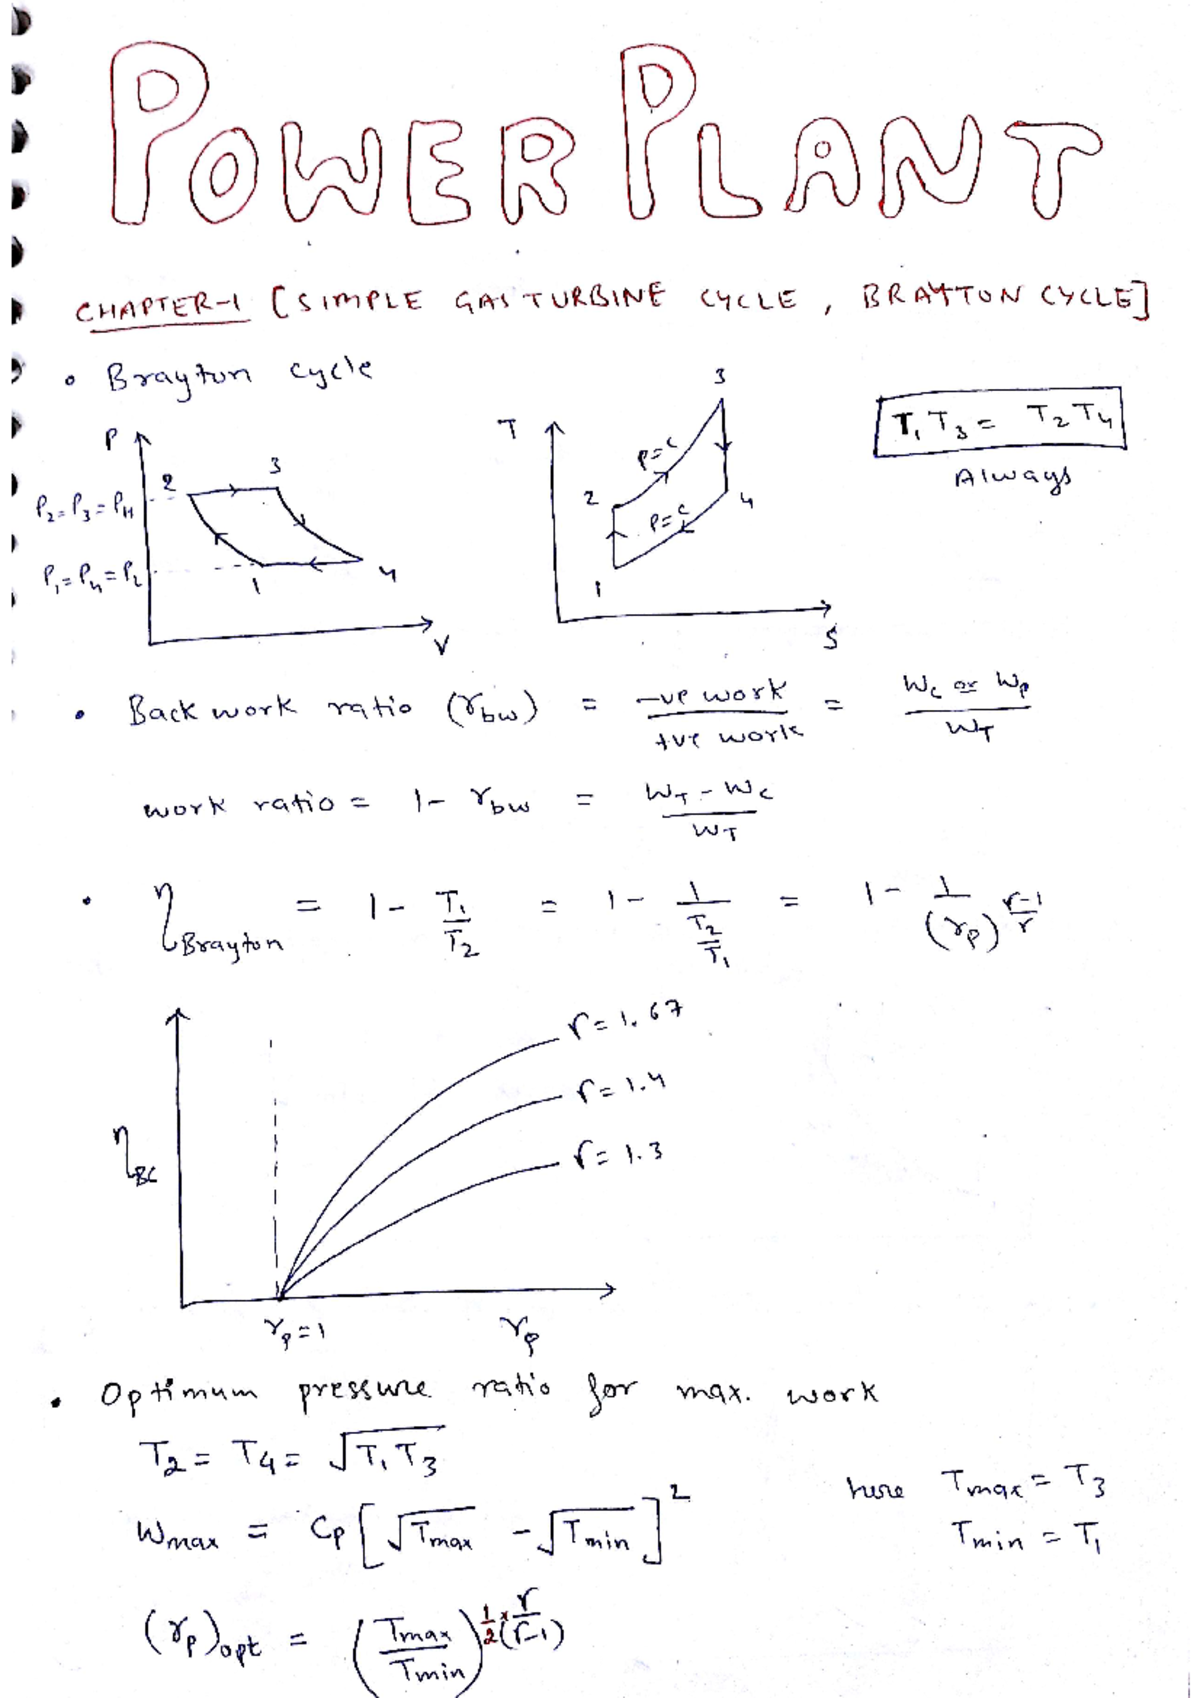 POWER PLANT
CHAPTER-1 [SIMPLE GAS TURBINE CYCLE, BRAYTON CYCLE]
• Brayton cycle
P
2
3
P₂=P₃=P_H
P₁=P₄=P_L
1
4
V
T
3
P=C
2
P=C
4
1
S
T₁T₃ = T₂T₄
Always
• Back work ratio (r_bw) = -ve work / +ve work = W_c or W_p / W_T
work ratio = 1 - r_bw = W_T - W_c / W_T
• η_Brayton = 1 - T₁/T₂ = 1 - 1/(T₂/T₁) = 1 - 1/(r_p)^(r-1/r)
r=1.67
r=1.4
η_BC
r=1.3
r_p=1
r_p
• Optimum pressure ratio for max. work
T₂ = T₄ = √T₁T₃
here T_max = T₃
W_max = C_p[√T_max - √T_min]²
T_min = T₁
(r_p)_opt = (T_max/T_min)^(1/2 × r/(r-1))